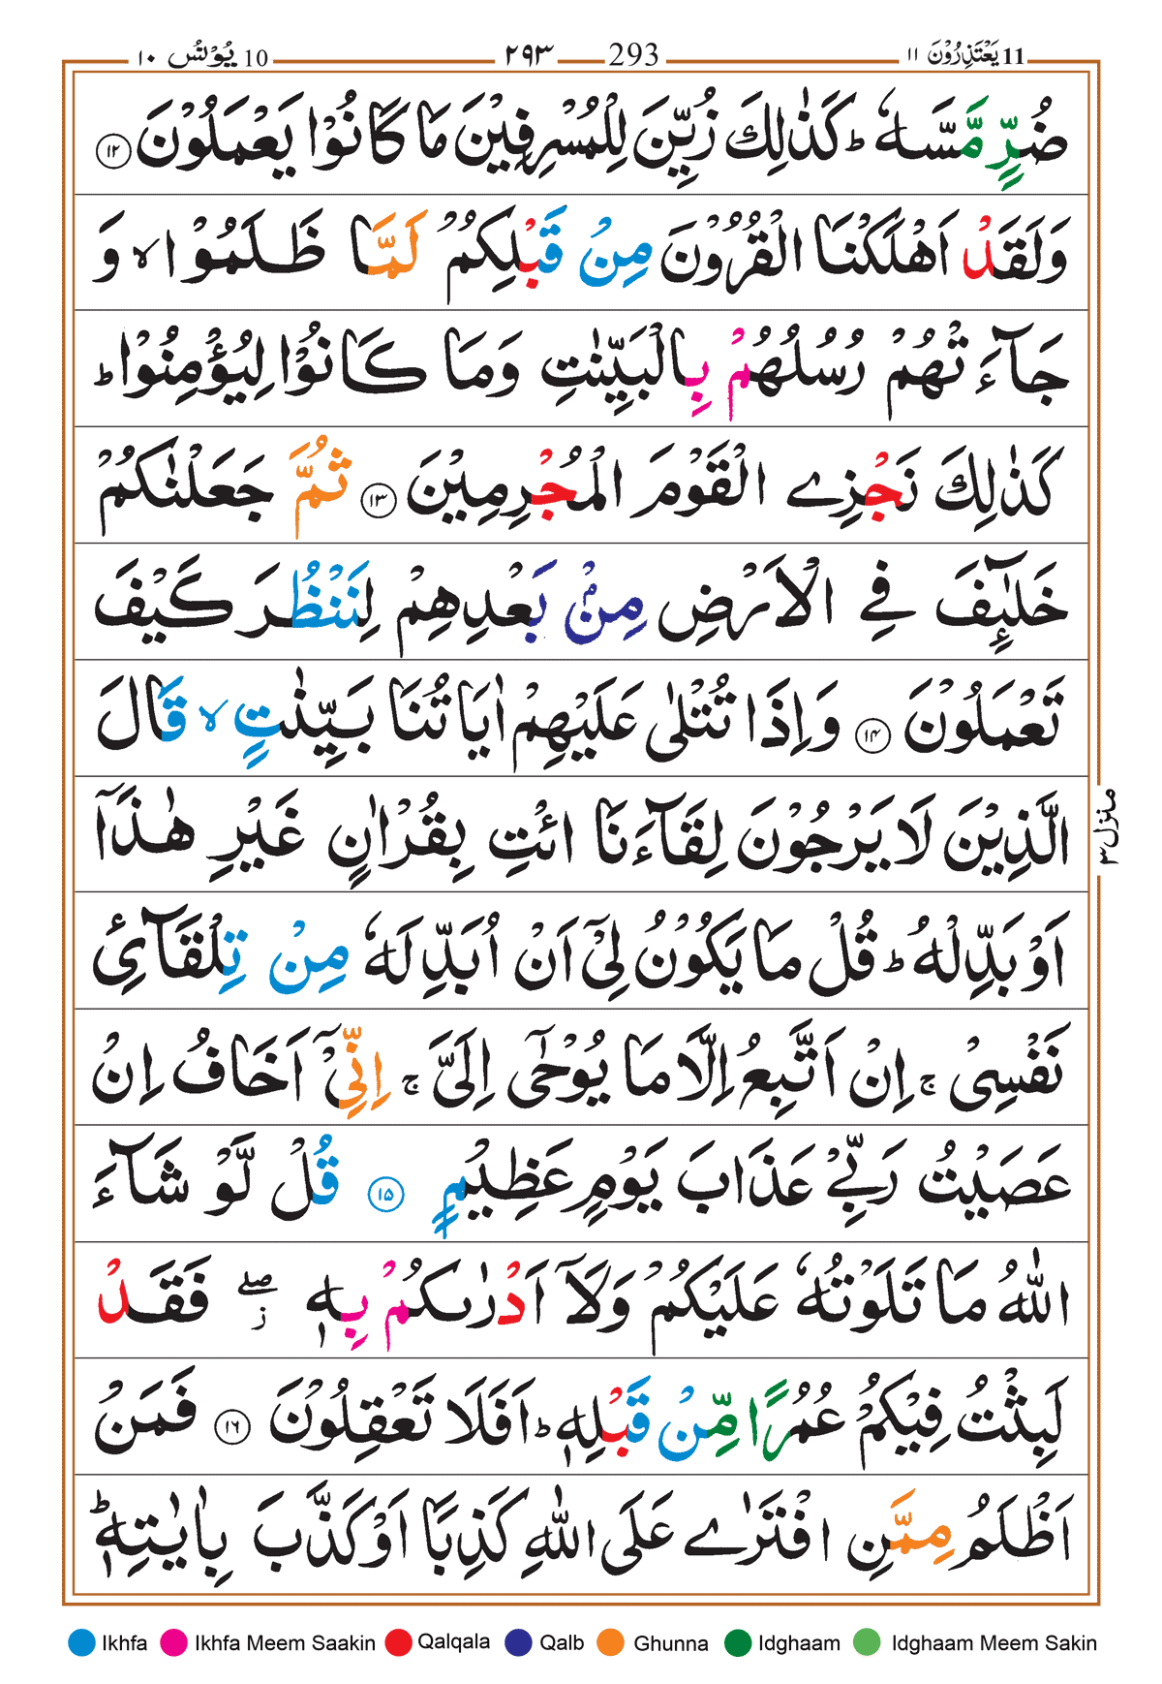 یَعْتَذِرُوْنَ ۱۱ 11 293 ۲۹۳ یُوْنُسُ ۱۰ 10
ضُرٍّ مَّسَّهٗ ؕ كَذٰلِكَ زُیِّنَ لِلْمُسْرِفِیْنَ مَا كَانُوْا یَعْمَلُوْنَ ۱۲
وَلَقَدْ اَهْلَكْنَا الْقُرُوْنَ مِنْ قَبْلِكُمْ لَمَّا ظَلَمُوْا ۙ وَ
جَآءَتْهُمْ رُسُلُهُمْ بِالْبَیِّنٰتِ وَمَا كَانُوْا لِیُؤْمِنُوْا ؕ
كَذٰلِكَ نَجْزِی الْقَوْمَ الْمُجْرِمِیْنَ ۱۳ ثُمَّ جَعَلْنٰكُمْ
خَلٰٓىِٕفَ فِی الْاَرْضِ مِنْۢ بَعْدِهِمْ لِنَنْظُرَ كَیْفَ
تَعْمَلُوْنَ ۱۴ وَاِذَا تُتْلٰی عَلَیْهِمْ اٰیَاتُنَا بَیِّنٰتٍ ۙ قَالَ
الَّذِیْنَ لَا یَرْجُوْنَ لِقَآءَنَا ائْتِ بِقُرْاٰنٍ غَیْرِ هٰذَاۤ
اَوْ بَدِّلْهُ ؕ قُلْ مَا یَكُوْنُ لِیْۤ اَنْ اُبَدِّلَهٗ مِنْ تِلْقَآئِ
نَفْسِیْ ۚ اِنْ اَتَّبِعُ اِلَّا مَا یُوْحٰۤی اِلَیَّ ۚ اِنِّیْۤ اَخَافُ اِنْ
عَصَیْتُ رَبِّیْ عَذَابَ یَوْمٍ عَظِیْمٍ ۱۵ قُلْ لَّوْ شَآءَ
اللّٰهُ مَا تَلَوْتُهٗ عَلَیْكُمْ وَلَاۤ اَدْرٰىكُمْ بِهٖ ۖ ز فَقَدْ
لَبِثْتُ فِیْكُمْ عُمُرًا مِّنْ قَبْلِهٖ ؕ اَفَلَا تَعْقِلُوْنَ ۱۶ فَمَنْ
اَظْلَمُ مِمَّنِ افْتَرٰی عَلَی اللّٰهِ كَذِبًا اَوْ كَذَّبَ بِاٰیٰتِهٖ ؕ
منزل ۳
Ikhfa Ikhfa Meem Saakin Qalqala Qalb Ghunna Idghaam Idghaam Meem Sakin